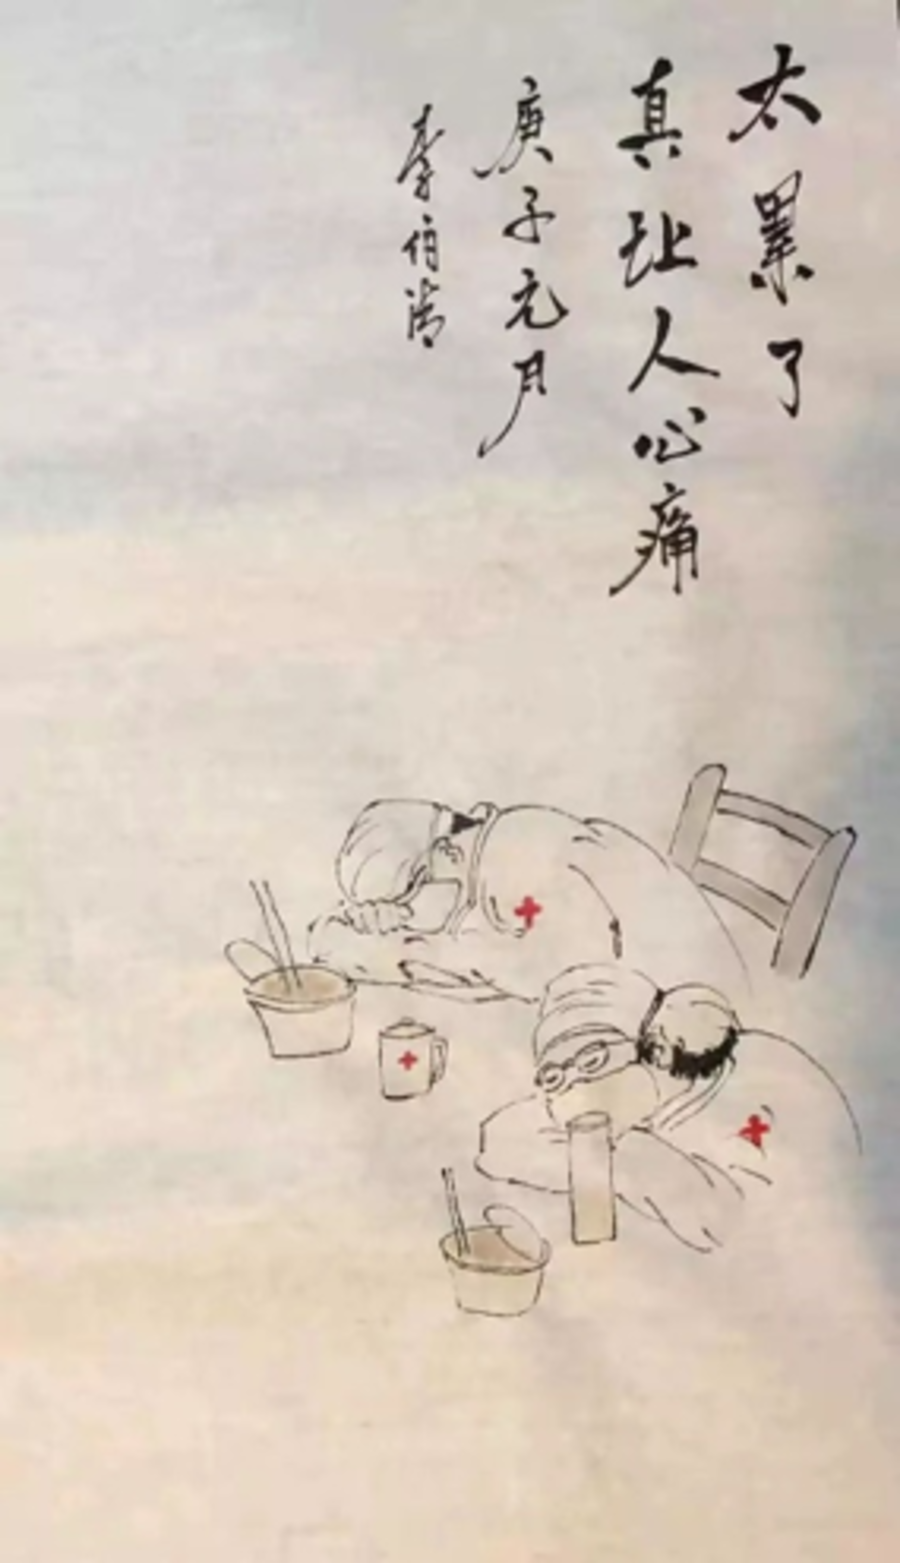 太累了
真让人心痛
庚子元月
李伯清